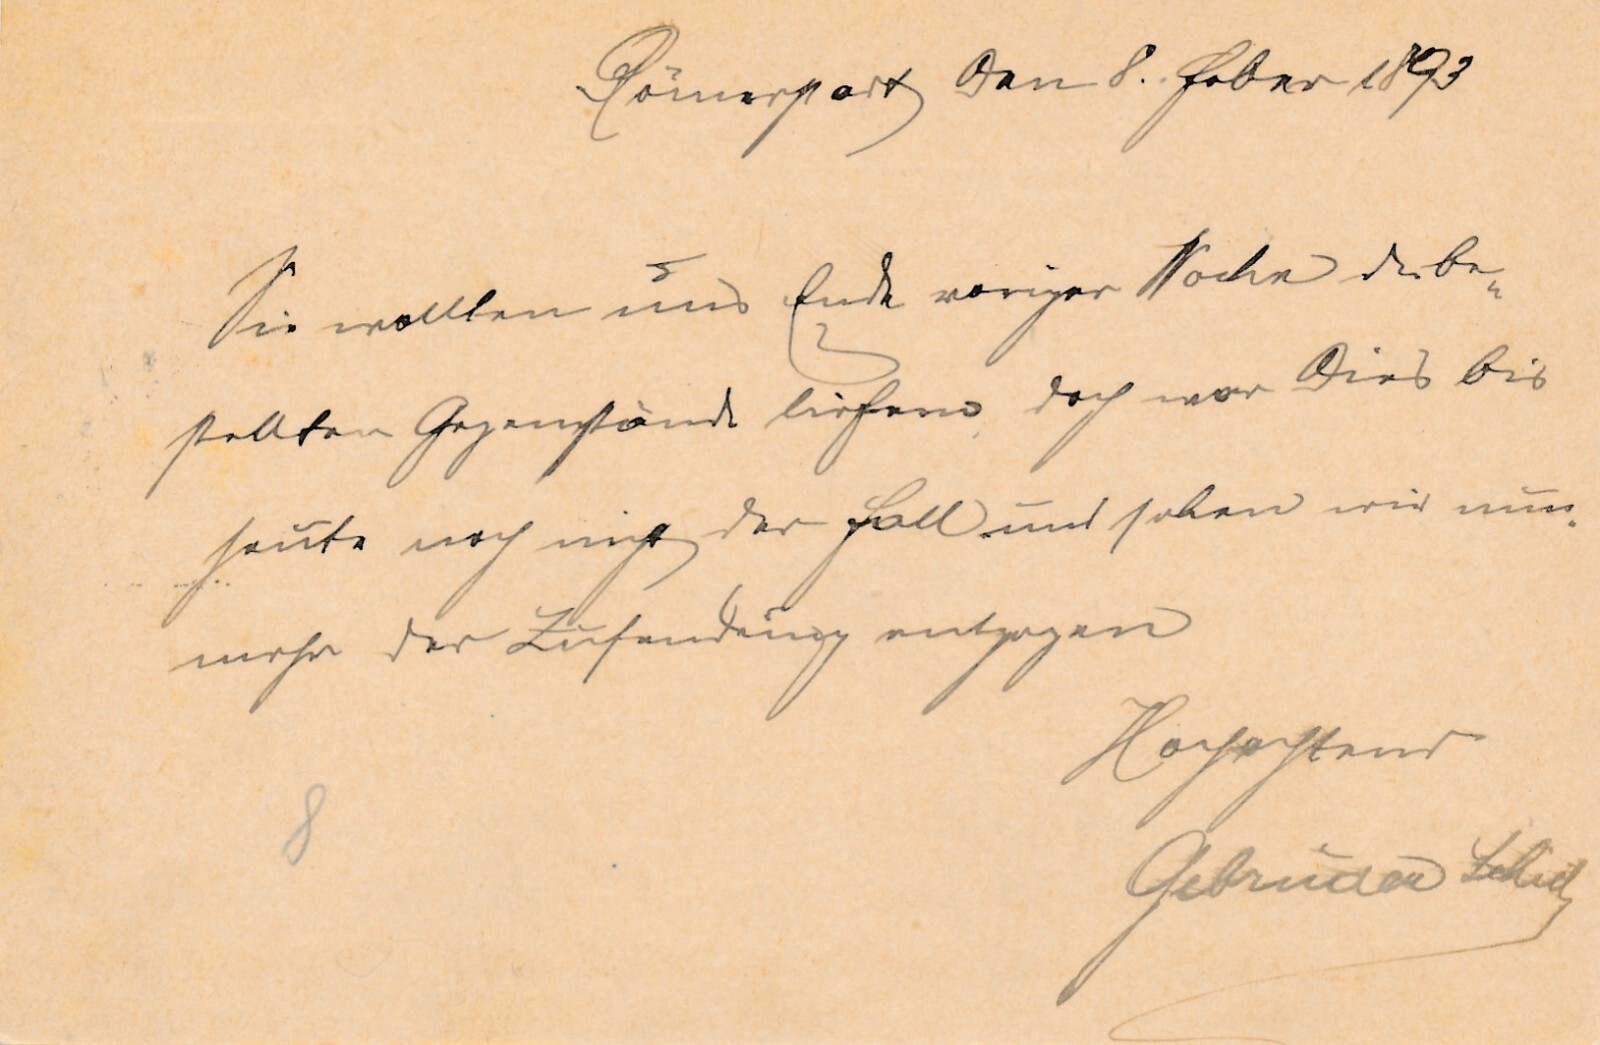 Cömerpart den 8. Feber 1893
Sie wollten uns Ende voriger Woche die be-
stellten Gegenstände liefern, doch war Dies bis
heute noch nicht der Fall und sehen wir nun-
mehr der Zusendung entgegen
Hochachtend
Gebrüder
8